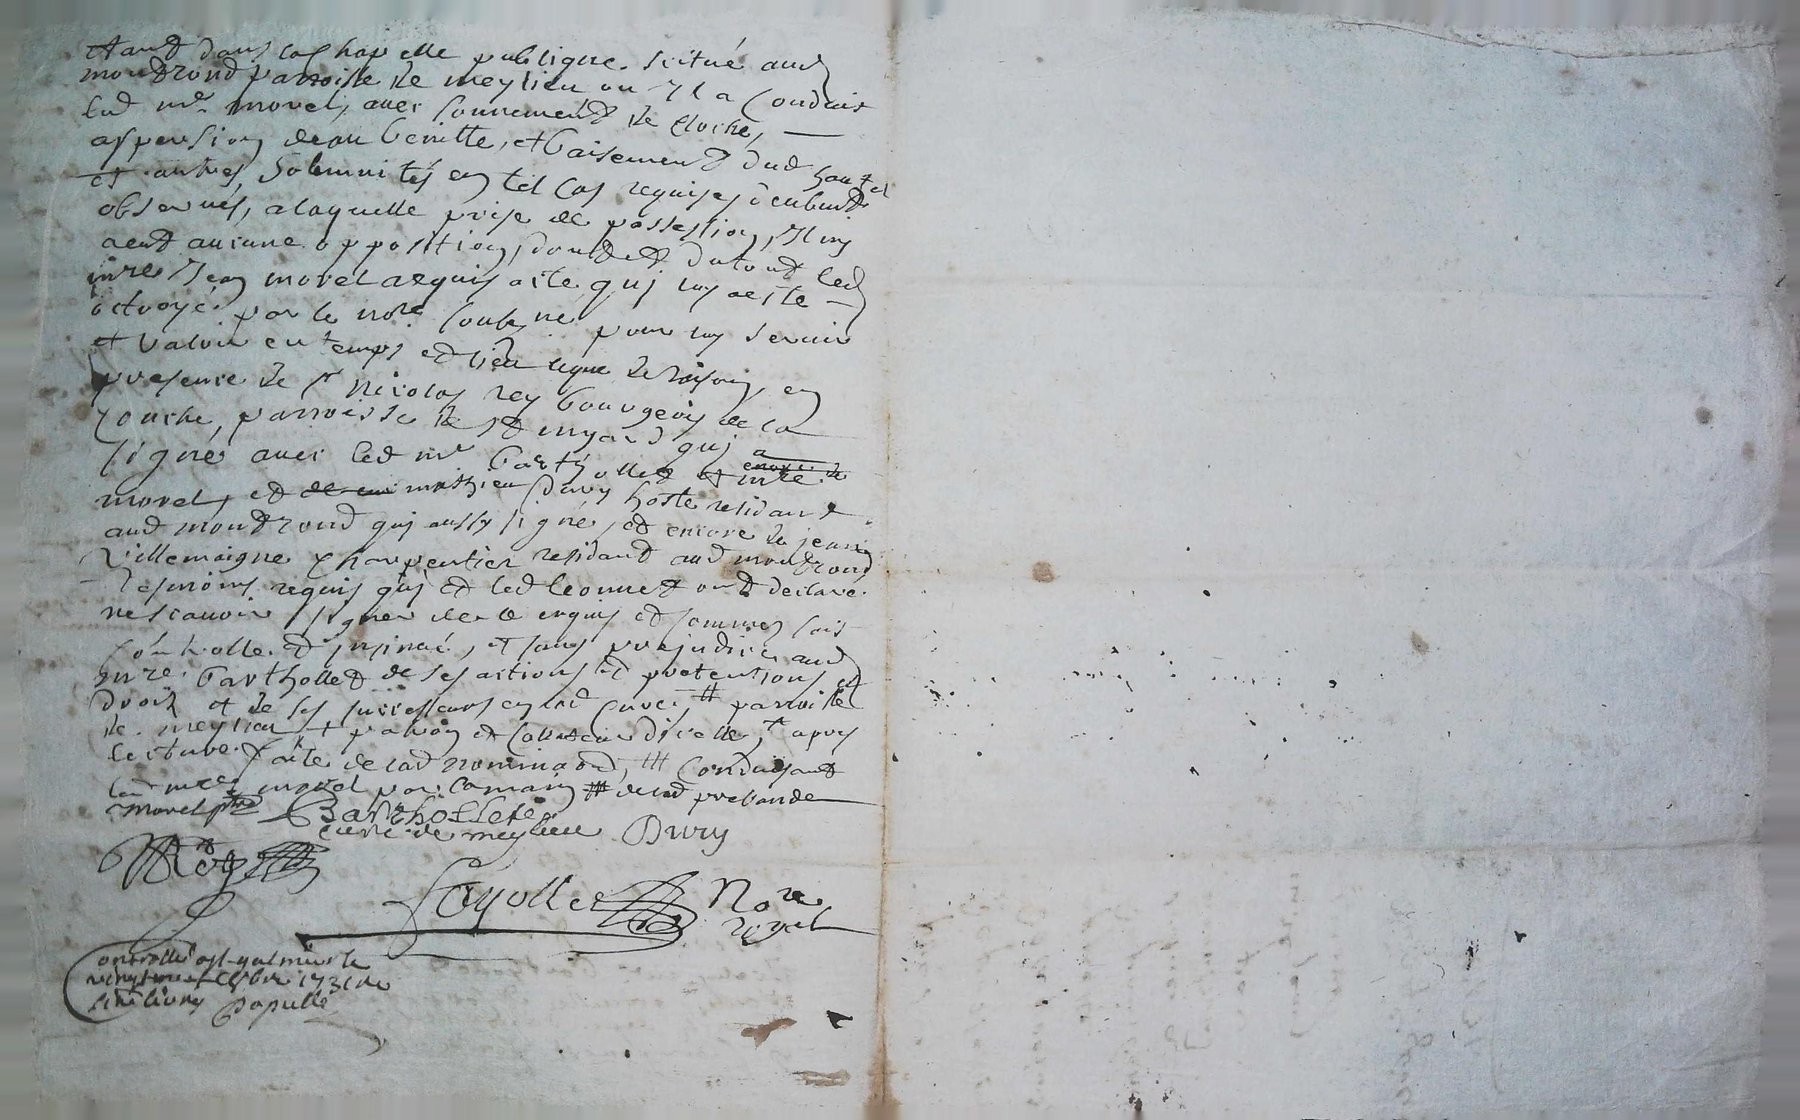 étand dans la chapelle publique scitué aud
montrond parroisse de meylieu ou Il a conduit
led mre morel, avec sonnement de cloche,
aspersion deau benitte, et baisement dud hautel
et autres solemnités en tel cas requises
observés, a laquelle prise de possession, Il ny
aeud aucune opposition, dont et dutout led
mre Jean morel arequis acte quj luy aeste
octroyé par le nore soubsigné pour luy servir
et valoir en temps et lieu que de raison, en
presence de sr nicolas rey bourgeois de la
fouche, parroisse de st
signé avec led mr barthollet
morel, et mathieu Dury hoste residant
aud montrond quj aussy signé, et encore de jean
Villemaigne charpentier residant aud montrond
tesmoins requis quj et led leonnet ont declaré
nescavoir signer de ce enquis et sommes sois
controllé et insinué, et sans prejudice aud
mre barthollet de ses actions et pretentions et
droit et de ses successeurs en lad cure # parroisse
de meylieu + patron et collateur dicelle, + apres
lecture faite de lad nominaon, ## conduisant
led mre morel par lamain ## de lad prebande
morel ptre Barthollet
curé de meylieu Dury
Rey
Fayolle Nore
royal
controllé a st galmier le
vingt neuf 1731
six livres